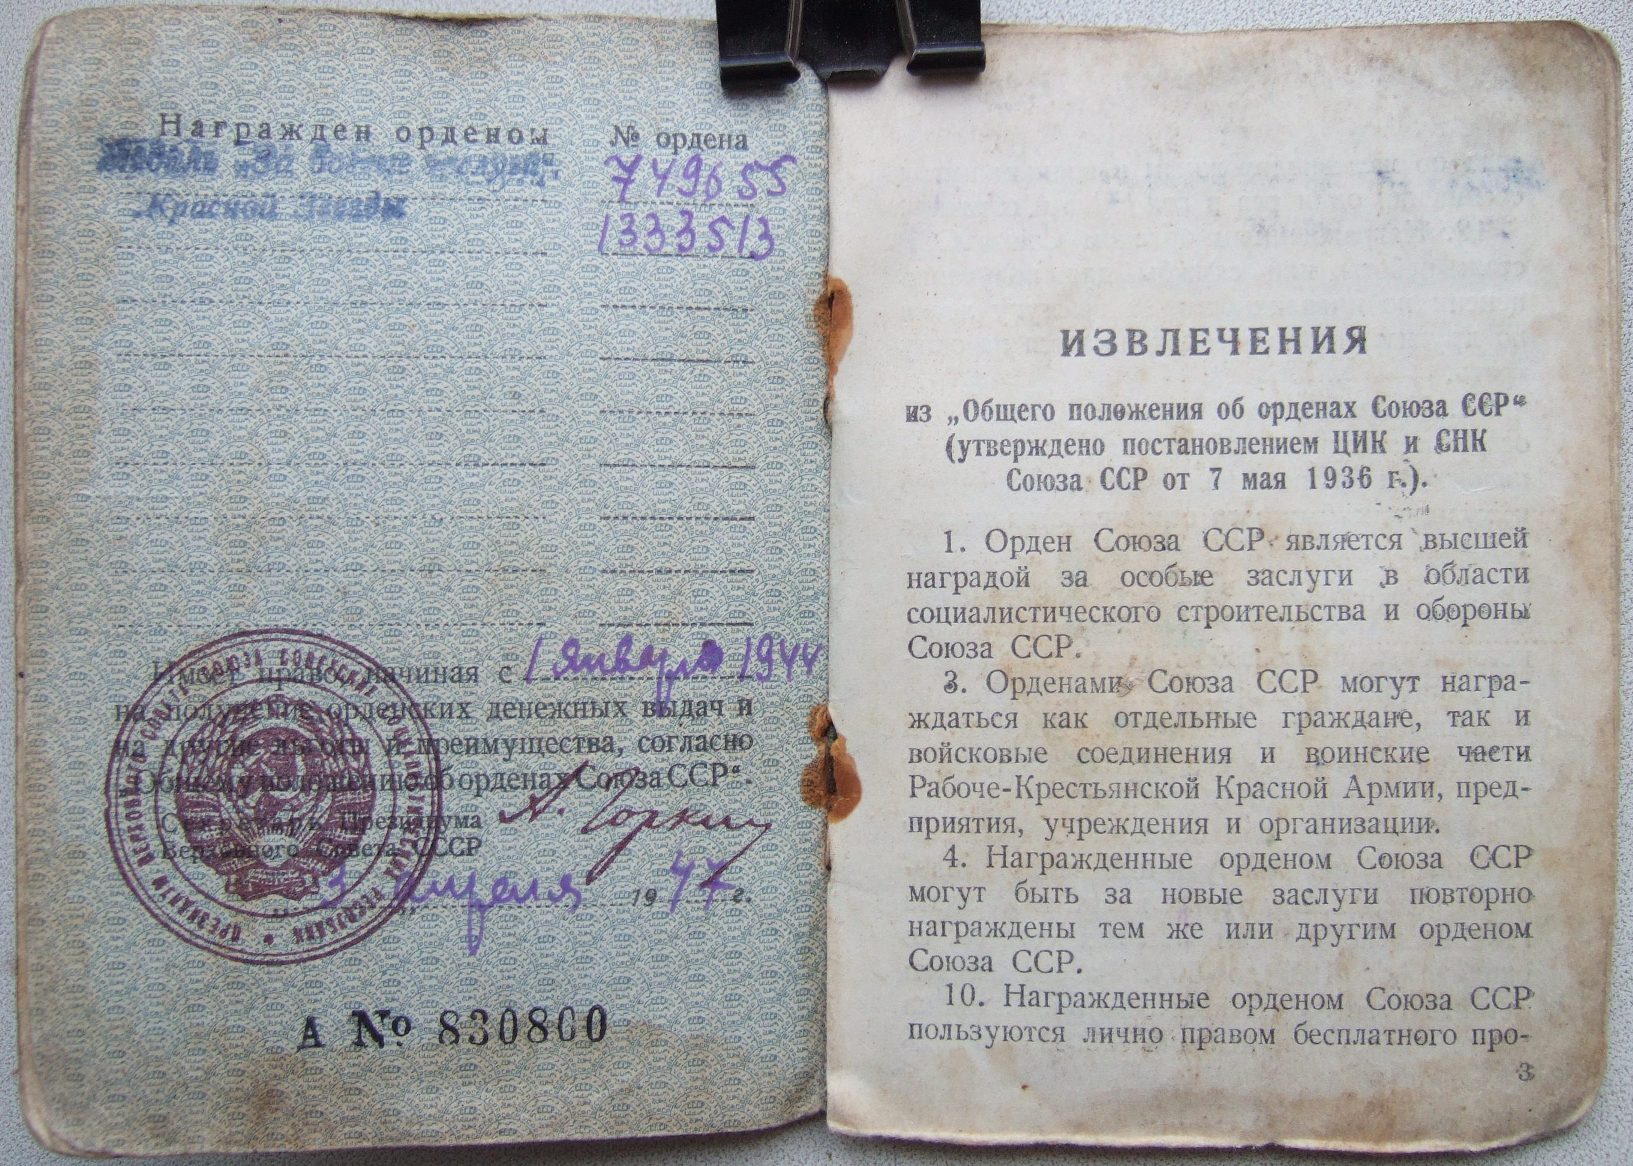 Награжден орденом № ордена
Медаль „За боевые заслуги" 749655
Красной Звезды 1333513
Имеет право, начиная с 1 Января 1944
на получение орденских денежных выдач и
на другие льготы и преимущества, согласно
„Общему положению об орденах Союза ССР".
Секретарь Президиума
Верховного Совета СССР А. Горкин
3 апреля 1947 г.
А № 830800
ИЗВЛЕЧЕНИЯ
из „Общего положения об орденах Союза ССР“
(утверждено постановлением ЦИК и СНК
Союза ССР от 7 мая 1936 г.).
1. Орден Союза ССР является высшей
наградой за особые заслуги в области
социалистического строительства и обороны
Союза ССР.
3. Орденами Союза ССР могут награ-
ждаться как отдельные граждане, так и
войсковые соединения и воинские части
Рабоче-Крестьянской Красной Армии, пред-
приятия, учреждения и организации.
4. Награжденные орденом Союза ССР
могут быть за новые заслуги повторно
награждены тем же или другим орденом
Союза ССР.
10. Награжденные орденом Союза ССР
пользуются лично правом бесплатного про-
3